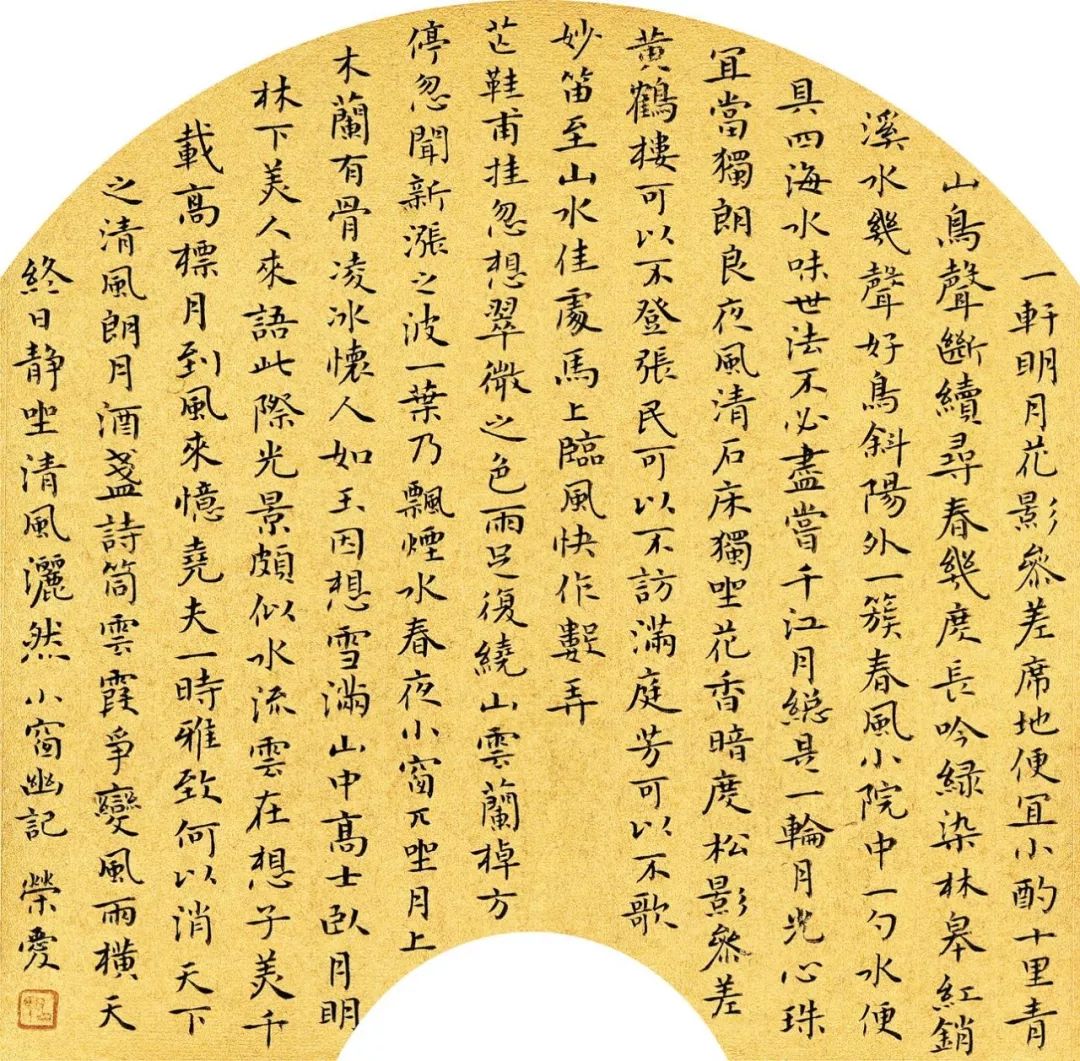 一軒明月花影參差席地便宜小酌十里青
山鳥聲斷續尋春幾度長吟綠染林皋紅銷
溪水幾聲好鳥斜陽外一簇春風小院中一勺水便
具四海水味世法不必盡嘗千江月總是一輪月光心珠
宜當獨朗良夜風清石床獨坐花香暗度松影參差
黃鶴樓可以不登張民可以不訪滿庭芳可以不歌
妙笛至山水佳處馬上臨風快作數弄
芒鞋甫挂忽想翠微之色雨足復繞山雲蘭棹方
停忽聞新漲之波一葉乃飄煙水春夜小窗兀坐月上
木蘭有骨凌冰懷人如玉因想雪滿山中高士臥月明
林下美人來語此際光景頗似水流雲在想子美千
載高標月到風來憶堯夫一時雅致何以消天下
之清風朗月酒盞詩筒雲霞爭變風雨橫天
終日静坐清風灑然 小窗幽記 榮愛